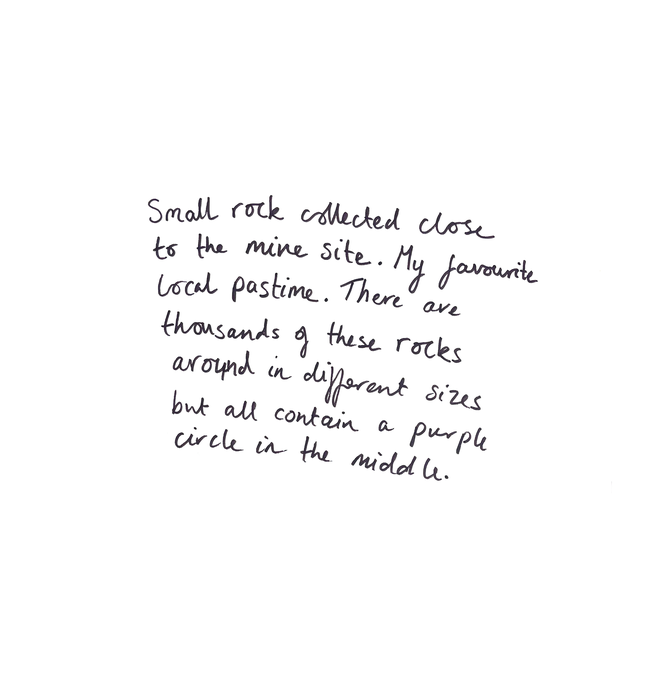 Small rock collected close
to the mine site. My favourite
local pastime. There are
thousands of these rocks
around in different sizes
but all contain a purple
circle in the middle.